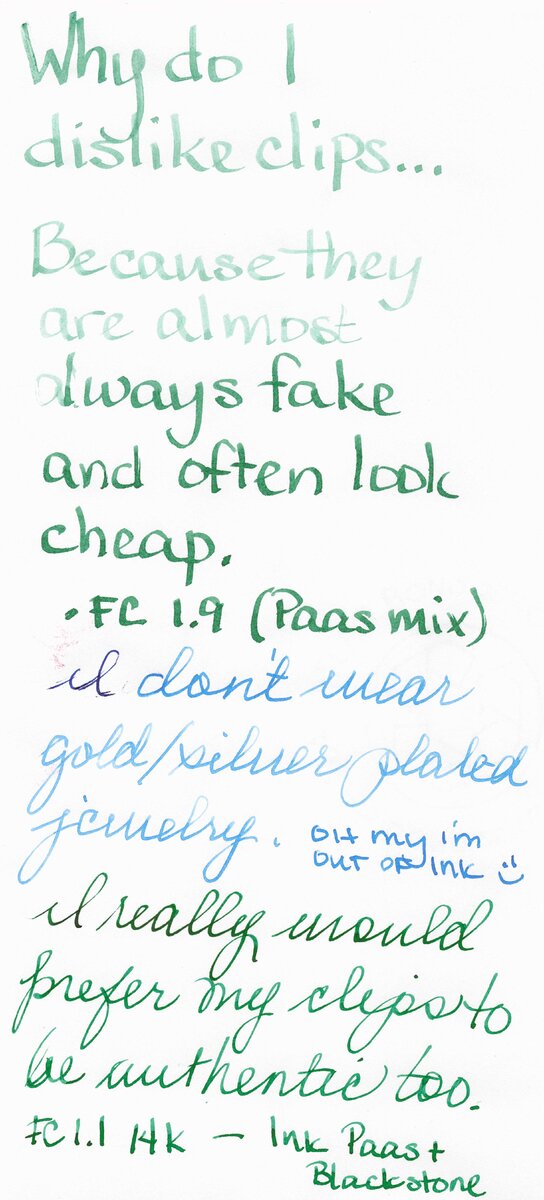 Why do I
dislike clips...
Because they
are almost
always fake
and often look
cheap.
• FC 1.9 (Paas mix)
I don't wear
gold/silver plated
jewelry.
OH my i'm
OUT OF INK :)
I really would
prefer my clips to
be authentic too.
FC 1.1 14k – Ink Paas +
Blackstone